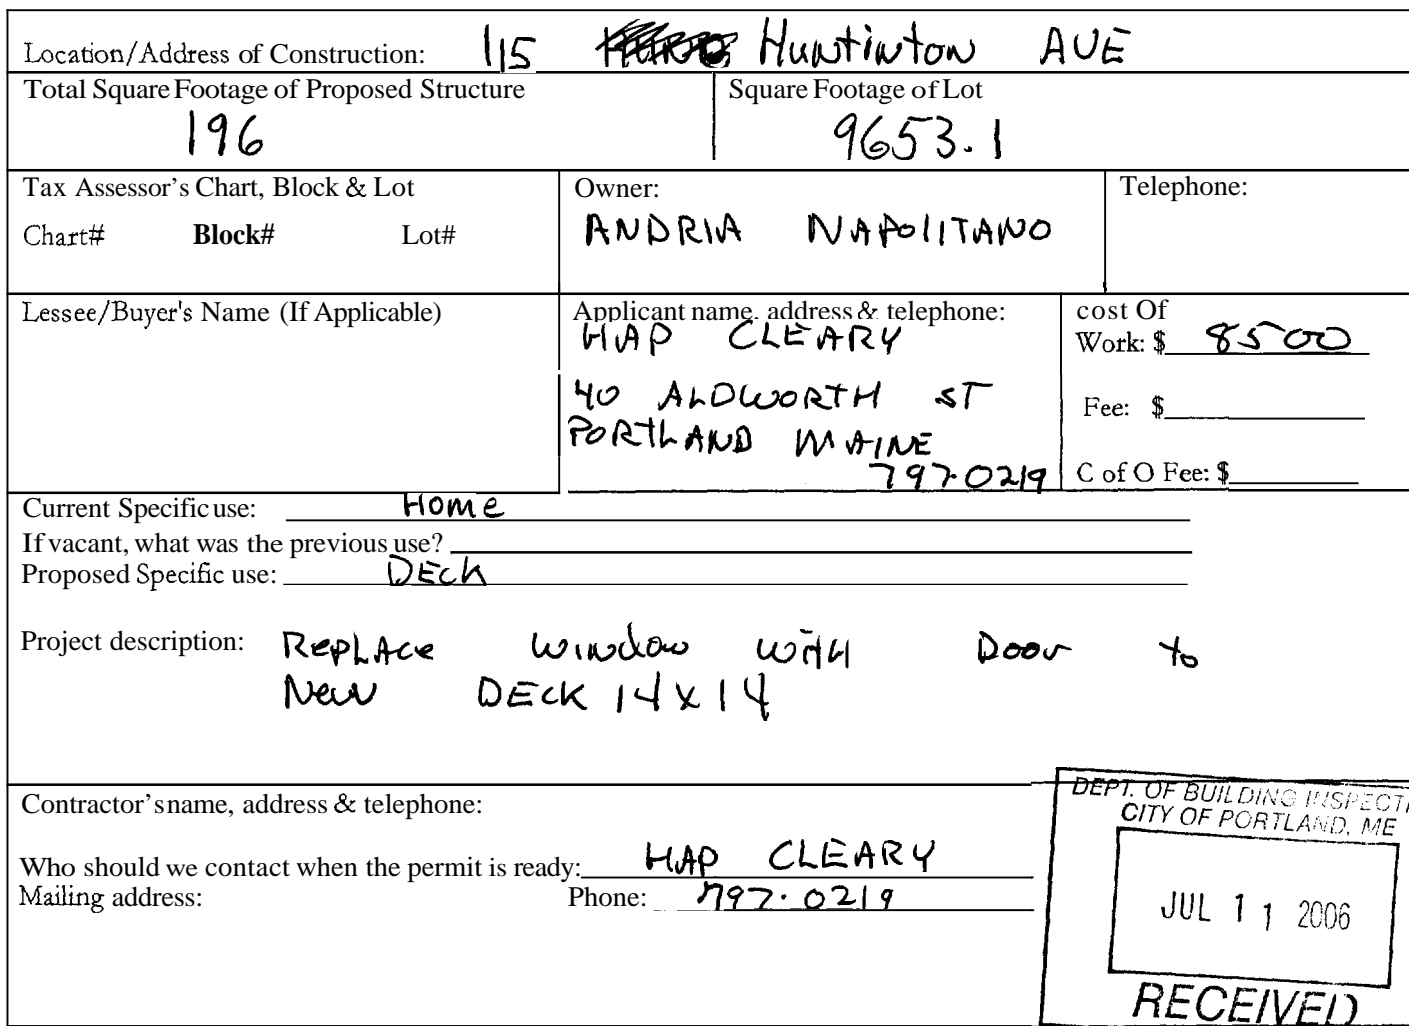 Location/Address of Construction: 115 Huntinton AVE
Total Square Footage of Proposed Structure
196
Square Footage of Lot
9653.1
Tax Assessor's Chart, Block & Lot
Chart# Block# Lot#
Owner:
ANDRIA NAPOLITANO
Telephone:
Lessee/Buyer's Name (If Applicable)
Applicant name, address & telephone:
HAP CLEARY
40 ALDWORTH ST
PORTLAND MAINE
797-0219
cost Of
Work: $ 8500
Fee: $
C of O Fee: $
Current Specific use: Home
If vacant, what was the previous use?
Proposed Specific use: DECK
Project description: RepLAce window with Door to
New DECK 14x14
Contractor's name, address & telephone:
Who should we contact when the permit is ready: HAP CLEARY
Mailing address: Phone: 797.0219
DEPT. OF BUILDING INSPECTI
CITY OF PORTLAND, ME
JUL 11 2006
RECEIVED